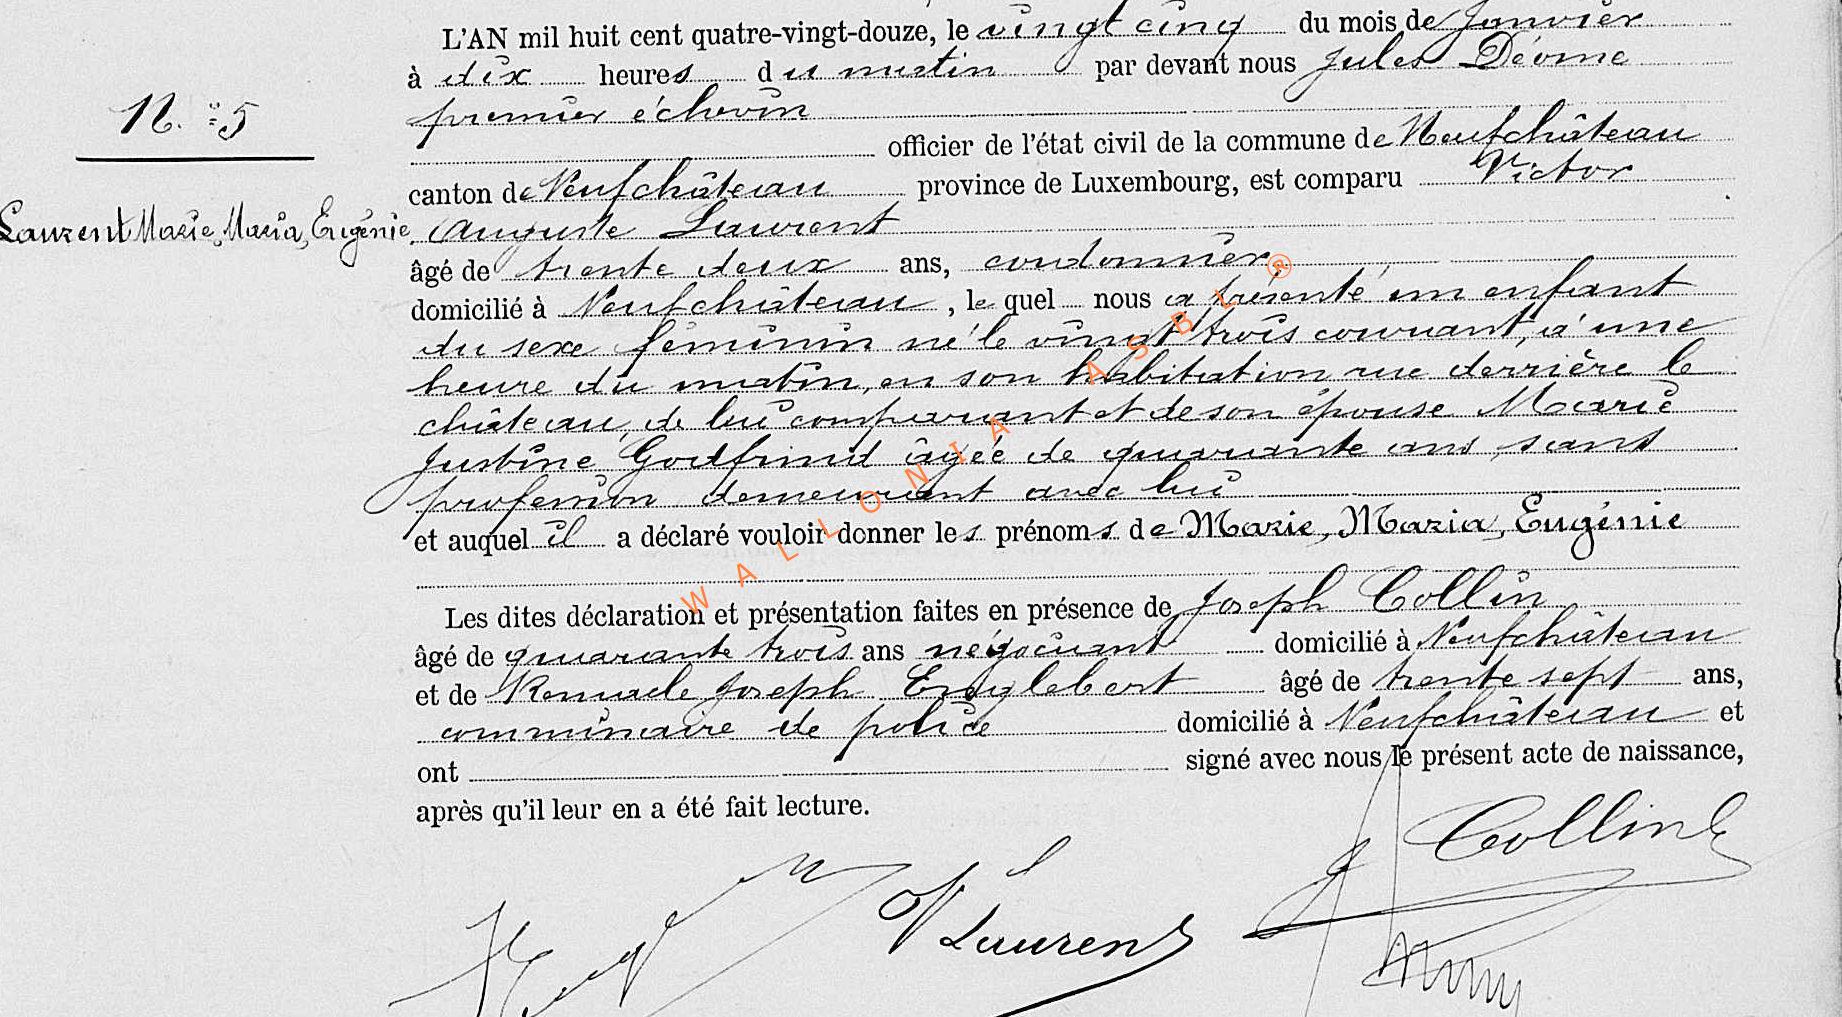 L'AN mil huit cent quatre-vingt-douze, le vingt cinq du mois de Janvier
à dix heures du matin par devant nous Jules Déome
premier échevin
N.° 5
officier de l'état civil de la commune de Neufchâteau
canton de Neufchâteau province de Luxembourg, est comparu Victor
Laurent Marie, Maria, Eugénie
Auguste Laurent
âgé de trente deux ans, cordonnier,
domicilié à Neufchâteau, le quel nous a présenté un enfant
du sexe féminin né le vingt trois courant, à une
heure du matin, en son habitation, rue derrière le
château, de lui comparant et de son épouse Marie
Justine Godfrind âgée de quarante ans, sans
profession demeurant avec lui
et auquel il a déclaré vouloir donner les prénoms de Marie, Maria, Eugénie
Les dites déclaration et présentation faites en présence de Joseph Collin
âgé de quarante trois ans négociant domicilié à Neufchâteau
et de Remacle Joseph Englebert âgé de trente sept ans,
commissaire de police domicilié à Neufchâteau et
ont signé avec nous le présent acte de naissance,
après qu'il leur en a été fait lecture.
J Collin
V Laurent
WALLONIA ASBL ®